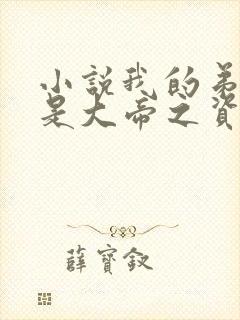 小說我的弟
是大帝之資
薛寶釵